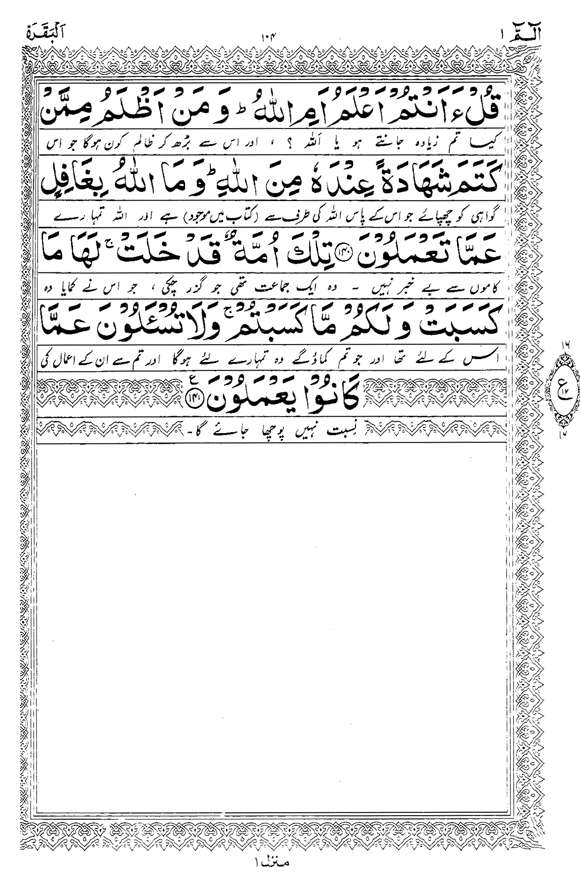 الٓمّٓ ١ ١٠٤ اَلْبَقَرَة
قُلْ ءَاَنْتُمْ اَعْلَمُ اَمِ اللّٰهُ ؕ وَمَنْ اَظْلَمُ مِمَّنْ
کیا تم زیادہ جانتے ہو یا اللہ ؟ ، اور اس سے بڑھ کر ظالم کون ہوگا جو اس
كَتَمَ شَهَادَةً عِنْدَهٗ مِنَ اللّٰهِ ؕ وَمَا اللّٰهُ بِغَافِلٍ
گواہی کو چھپائے جو اس کے پاس اللہ کی طرف سے (کتاب میں موجود) ہے اور اللہ تمہارے
عَمَّا تَعْمَلُوْنَ ﴿۱۴۰﴾ تِلْكَ اُمَّةٌ قَدْ خَلَتْ ۚ لَهَا مَا
کاموں سے بے خبر نہیں ۔ وہ ایک جماعت تھی جو گزر چکی ، جو اس نے کمایا وہ
كَسَبَتْ وَلَكُمْ مَّا كَسَبْتُمْ ۚ وَلَا تُسْـَٔلُوْنَ عَمَّا
اس کے لئے تھا اور جو تم کماؤگے وہ تمہارے لئے ہوگا اور تم سے ان کے اعمال کی
كَانُوْا يَعْمَلُوْنَ ﴿۱۴۱﴾ ع
نسبت نہیں پوچھا جائے گا ۔
١٦
ع
١٢
١٧
منزل ١